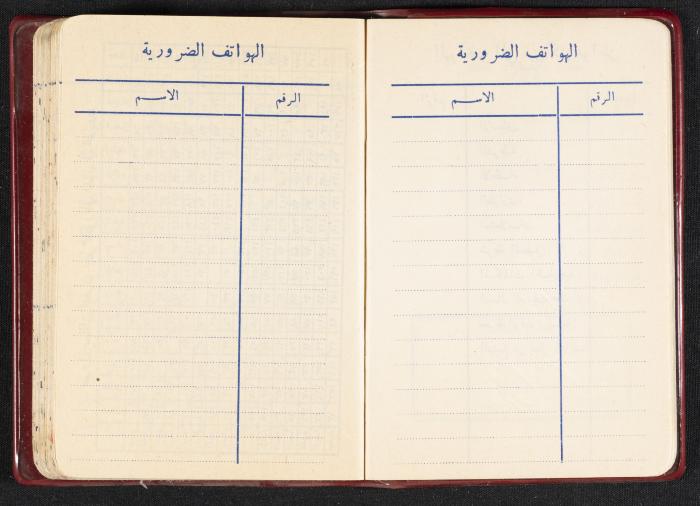 الهواتف الضرورية
الرقم الاسم
الهواتف الضرورية
الرقم الاسم